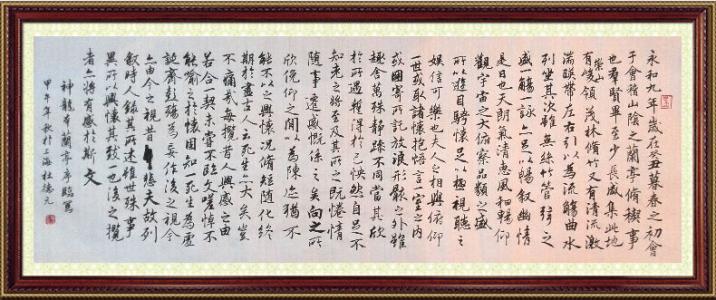 永和九年歲在癸丑暮春之初會
于會稽山陰之蘭亭脩稧事
也群賢畢至少長咸集此地
有崇山峻領茂林脩竹又有清流激
湍暎帶左右引以為流觴曲水
列坐其次雖無絲竹管弦之
盛一觴一詠亦足以暢敘幽情
是日也天朗氣清惠風和暢仰
觀宇宙之大俯察品類之盛
所以遊目騁懷足以極視聽之
娛信可樂也夫人之相與俯仰
一世或取諸懷抱悟言一室之內
或因寄所託放浪形骸之外雖
趣舍萬殊靜躁不同當其欣
於所遇蹔得於己怏然自足不
知老之將至及其所之既惓情
隨事遷感慨係之矣向之所
欣俛仰之閒以為陳迹猶不
能不以之興懷況脩短隨化終
期於盡古人云死生亦大矣豈
不痛哉每攬昔人興感之由
若合一契未嘗不臨文嗟悼不
能喻之於懷固知一死生為虛
誕齊彭殤為妄作後之視今
亦由今之視昔悲夫故列
敘時人錄其所述雖世殊事
異所以興懷其致一也後之攬
者亦將有感於斯文
神龍本蘭亭序臨寫
甲午年秋於上海杜德元